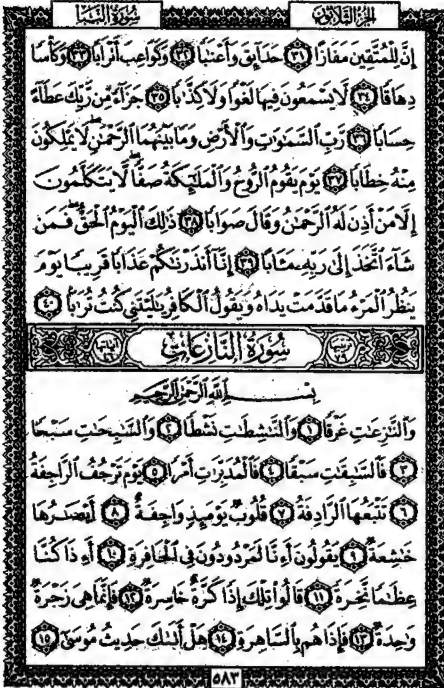 الجزء الثلاثون سورة النبإ
إِنَّ لِلْمُتَّقِينَ مَفَازًا ٣١ حَدَائِقَ وَأَعْنَابًا ٣٢ وَكَوَاعِبَ أَتْرَابًا ٣٣ وَكَأْسًا
دِهَاقًا ٣٤ لَّا يَسْمَعُونَ فِيهَا لَغْوًا وَلَا كِذَّابًا ٣٥ جَزَاءً مِّن رَّبِّكَ عَطَاءً
حِسَابًا ٣٦ رَّبِّ السَّمَٰوَٰتِ وَالْأَرْضِ وَمَا بَيْنَهُمَا الرَّحْمَٰنِ لَا يَمْلِكُونَ
مِنْهُ خِطَابًا ٣٧ يَوْمَ يَقُومُ الرُّوحُ وَالْمَلَٰئِكَةُ صَفًّا لَّا يَتَكَلَّمُونَ
إِلَّا مَنْ أَذِنَ لَهُ الرَّحْمَٰنُ وَقَالَ صَوَابًا ٣٨ ذَٰلِكَ الْيَوْمُ الْحَقُّ فَمَن
شَاءَ اتَّخَذَ إِلَىٰ رَبِّهِ مَـَٔابًا ٣٩ إِنَّا أَنذَرْنَٰكُمْ عَذَابًا قَرِيبًا يَوْمَ
يَنظُرُ الْمَرْءُ مَا قَدَّمَتْ يَدَاهُ وَيَقُولُ الْكَافِرُ يَٰلَيْتَنِي كُنتُ تُرَٰبًا ٤٠
سورة النازعات
بِسْمِ اللَّهِ الرَّحْمَٰنِ الرَّحِيمِ
وَالنَّٰزِعَٰتِ غَرْقًا ١ وَالنَّٰشِطَٰتِ نَشْطًا ٢ وَالسَّٰبِحَٰتِ سَبْحًا
٣ فَالسَّٰبِقَٰتِ سَبْقًا ٤ فَالْمُدَبِّرَٰتِ أَمْرًا ٥ يَوْمَ تَرْجُفُ الرَّاجِفَةُ
٦ تَتْبَعُهَا الرَّادِفَةُ ٧ قُلُوبٌ يَوْمَئِذٍ وَاجِفَةٌ ٨ أَبْصَٰرُهَا
خَٰشِعَةٌ ٩ يَقُولُونَ أَءِنَّا لَمَرْدُودُونَ فِي الْحَافِرَةِ ١٠ أَءِذَا كُنَّا
عِظَٰمًا نَّخِرَةً ١١ قَالُوا تِلْكَ إِذًا كَرَّةٌ خَاسِرَةٌ ١٢ فَإِنَّمَا هِيَ زَجْرَةٌ
وَٰحِدَةٌ ١٣ فَإِذَا هُم بِالسَّاهِرَةِ ١٤ هَلْ أَتَىٰكَ حَدِيثُ مُوسَىٰ ١٥
٥٨٣